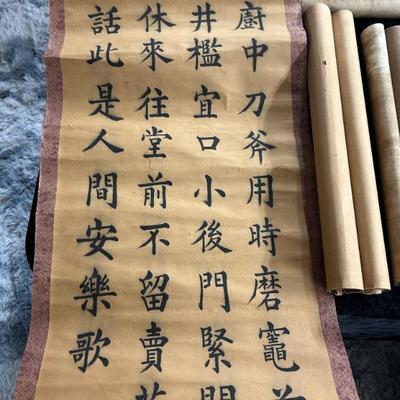 廚中刀斧用時磨竈
井檻宜口小後門緊
休來往堂前不留賣
話此是人間安樂歌